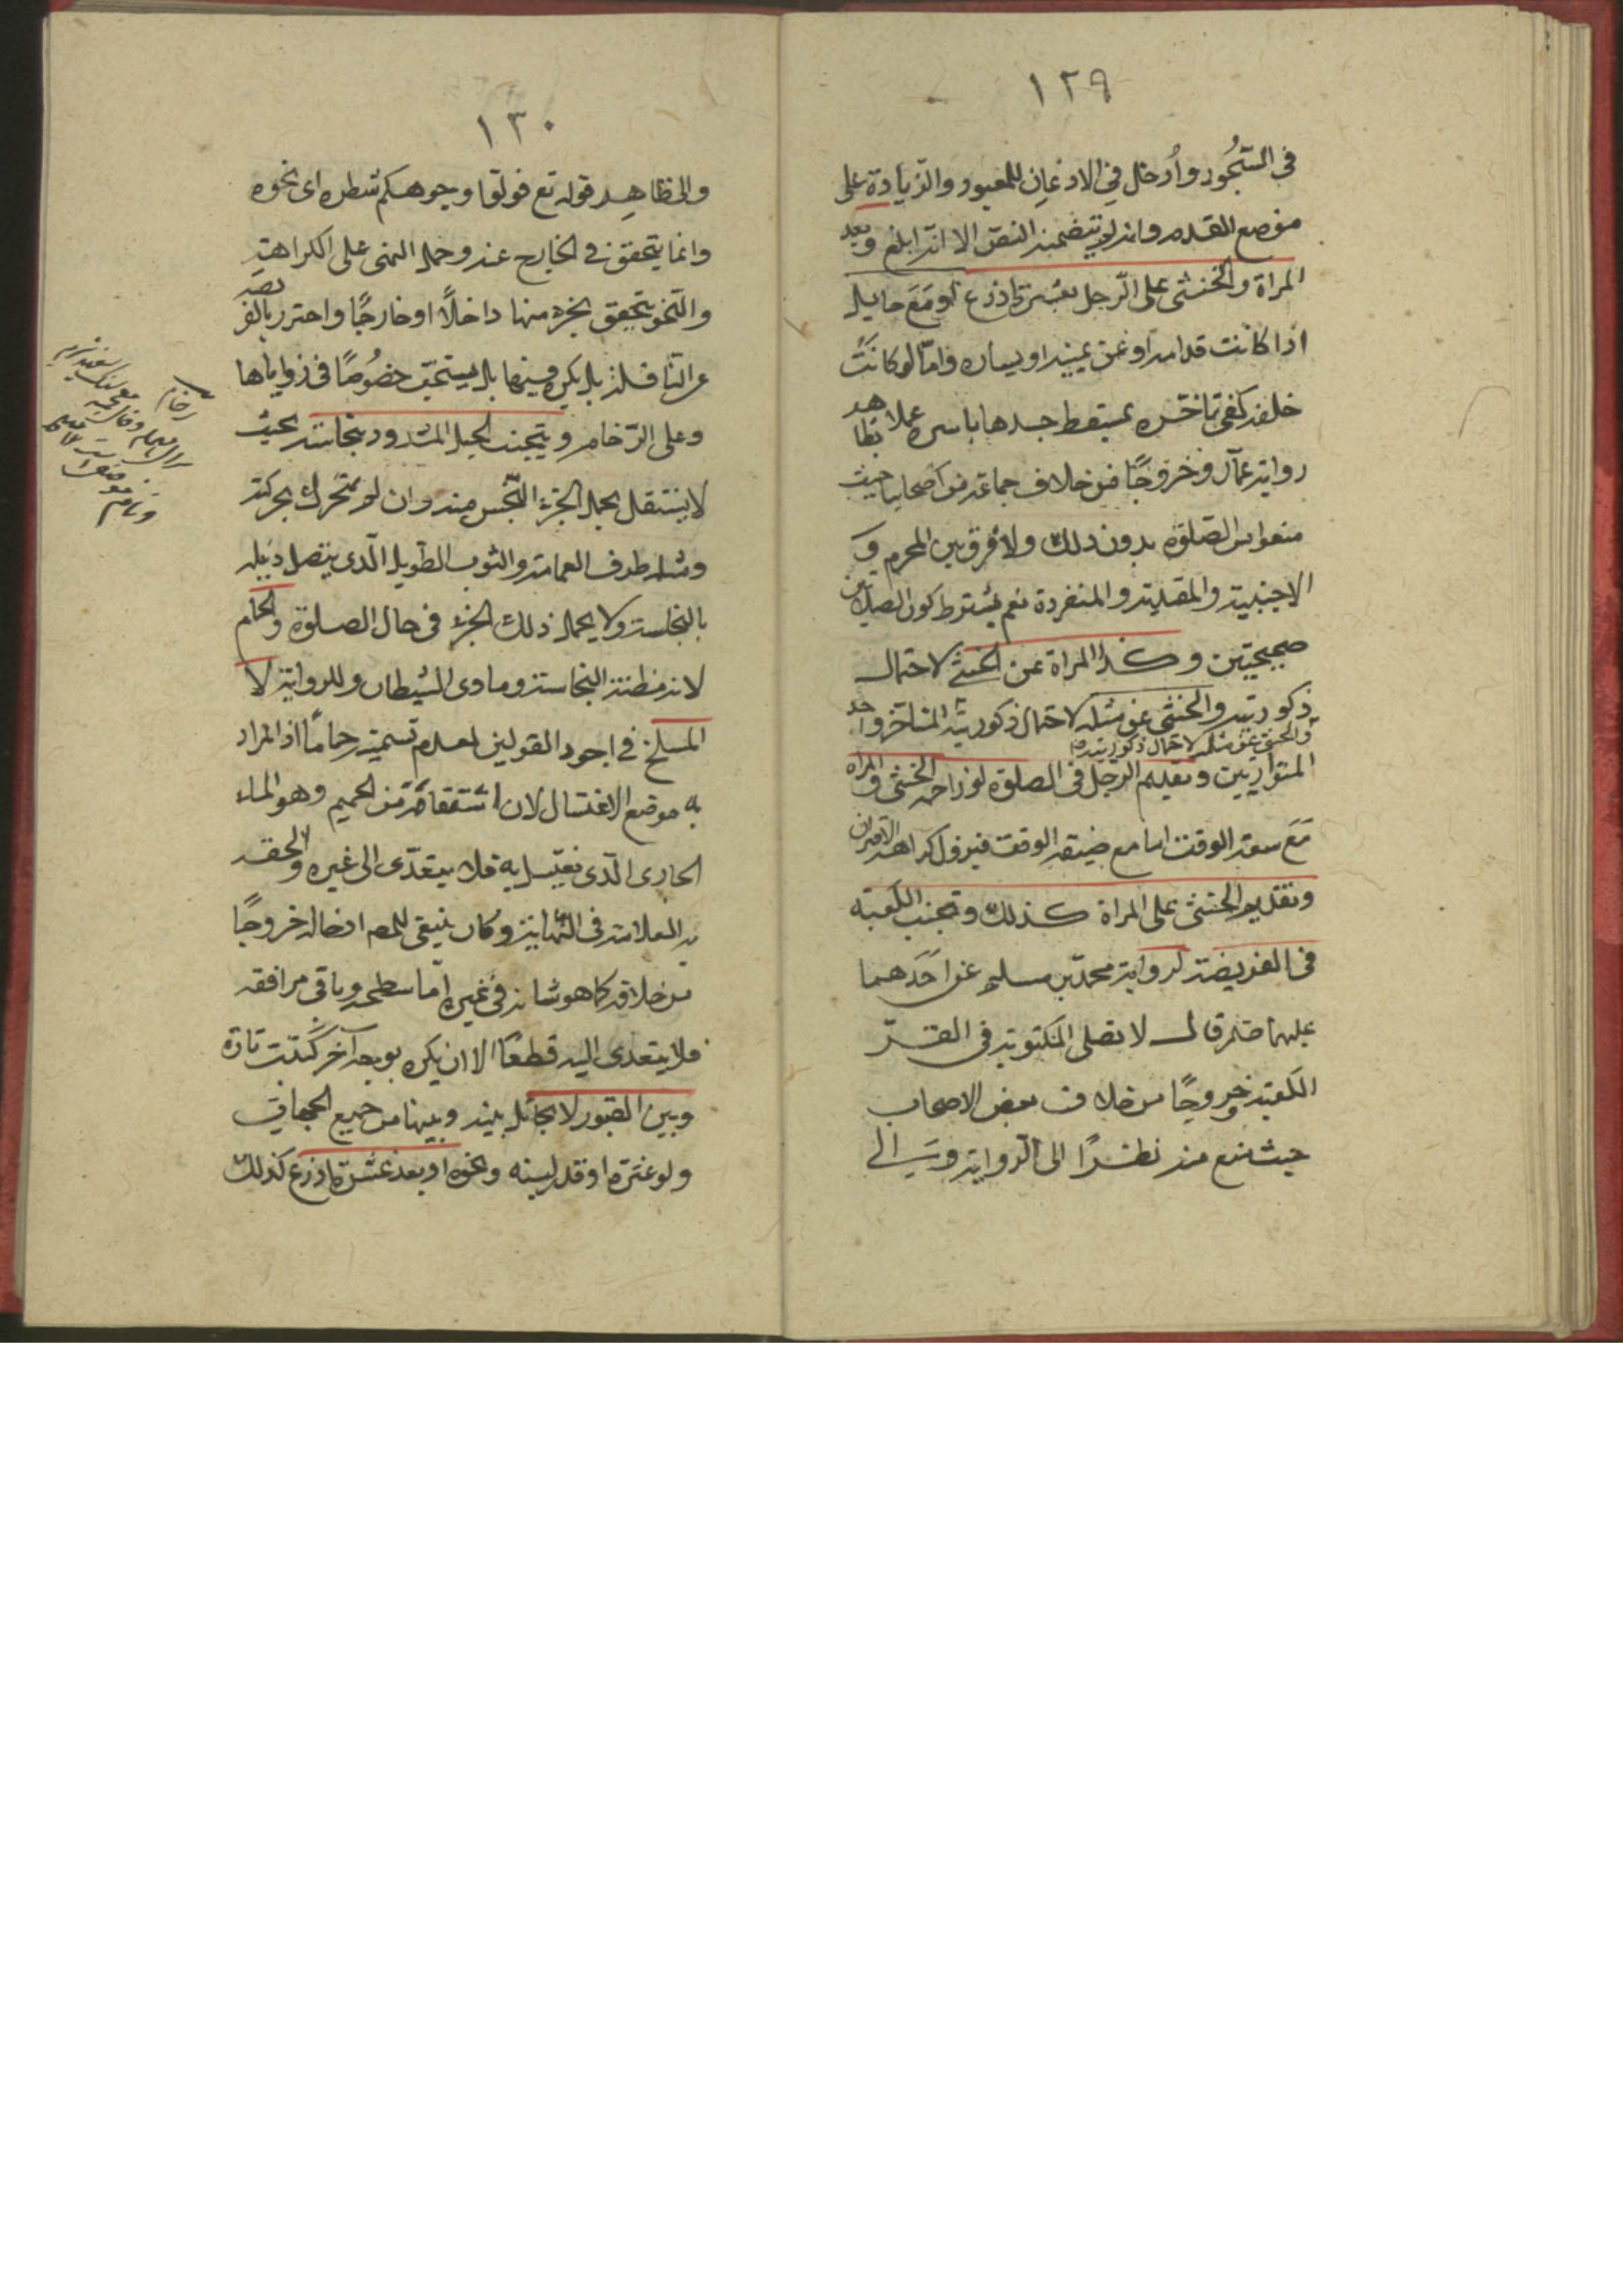 ١٢٩
في السّجُود وأدخل في الاذعان للمعبود والزيادة على
موضع القدم وان لم يتضمنه النصّ الا انّه ابلغ وبعد
المراة والخنثى على الرّجل بعشرة اذرع او مَعَ حايل
اذا كانت قدامه او عن يمينه او يساره وامّا لو كانَت
خلفه كفى تاخره بمسقط جسدها باسره عملا بظاهر
رواية عمّار وخروجًا من خلاف جماعة من اصحابنا حيث
منعوا من الصّلوة بدون ذلك ولا فرق بين المحرم و
الاجنبية والمقتدية والمنفردة نعم يشترط كون الصلاتين
صحيحتين وكذا المراة عن الخنثى لاحتمال
ذكوريته والخنثى عن مثله لاحتمال ذكورية المتاخر واحد
والخنثى عن مثله لاحتمال ذكوريته
المتوازيين وتقديم الرجل في الصلوة لو زاحمه الخنثى والمراة
مَعَ سعة الوقت اما مع ضيقه الوقت فيزول كراهة الاقتران
وتقديم الخنثى على المراة كذلك وتجنب الكعبة
في الفريضة لرواية محمّد بن مسلم عن احَدهما
عليهما قال لا تصلى المكتوبة في
الكعبة وخروجًا من خلاف بعض الاصحاب
حيث منع منه نظرًا الى الرواية و الى
١٣٠
والى ظاهِر قوله تع فولوا وجوهكم شطره اى نحوه
وانما يتحقق في الخارج عنه وحمل النهى على الكراهة
والنحو يتحقق بجزء منها داخلًا او خارجًا واحترز بالفريضة
عن النافلة فلا يكره فيها بل يستحبّ خصُوصًا في زواياها
وعلى الرّخامة ويتجنب الحبل المشدود بنجاسة بحيث
لا ينتقل بحمل الجزء النّجس منه وان لم يتحرك بحركته
ومثله طرف العمامة والثوب الطويل الّذى يتصل ذيله
بالنجاسة ولا يحمل ذلك الجزء في حال الصلوة والحمام
لانه مظنة النجاسة وماوى الشيطان وللرواية لا
المسلخ في اجود القولين لعدم تسميته حمامًا اذ المراد
به موضع الاغتسال لان اشتقاقه من الحميم وهو الماء
الحار الّذى يغتسل به فلا يتعدّى الى غيره والحقه
به العلامة في النهاية وكان ينبغى للمص ادخاله خروجًا
من خلافه كما هو شانه في غيره امّا سطحه وباقى مرافقه
فلا يتعدى اليه قطعًا الا ان يكره بوجه آخر كبيت ناره
وبين القبور لا بحائل بينه وبينها من جميع الجهات
ولو عنزة او قدر لبنة ونحوه او بعد عشرة اذرع كذلك
رخام